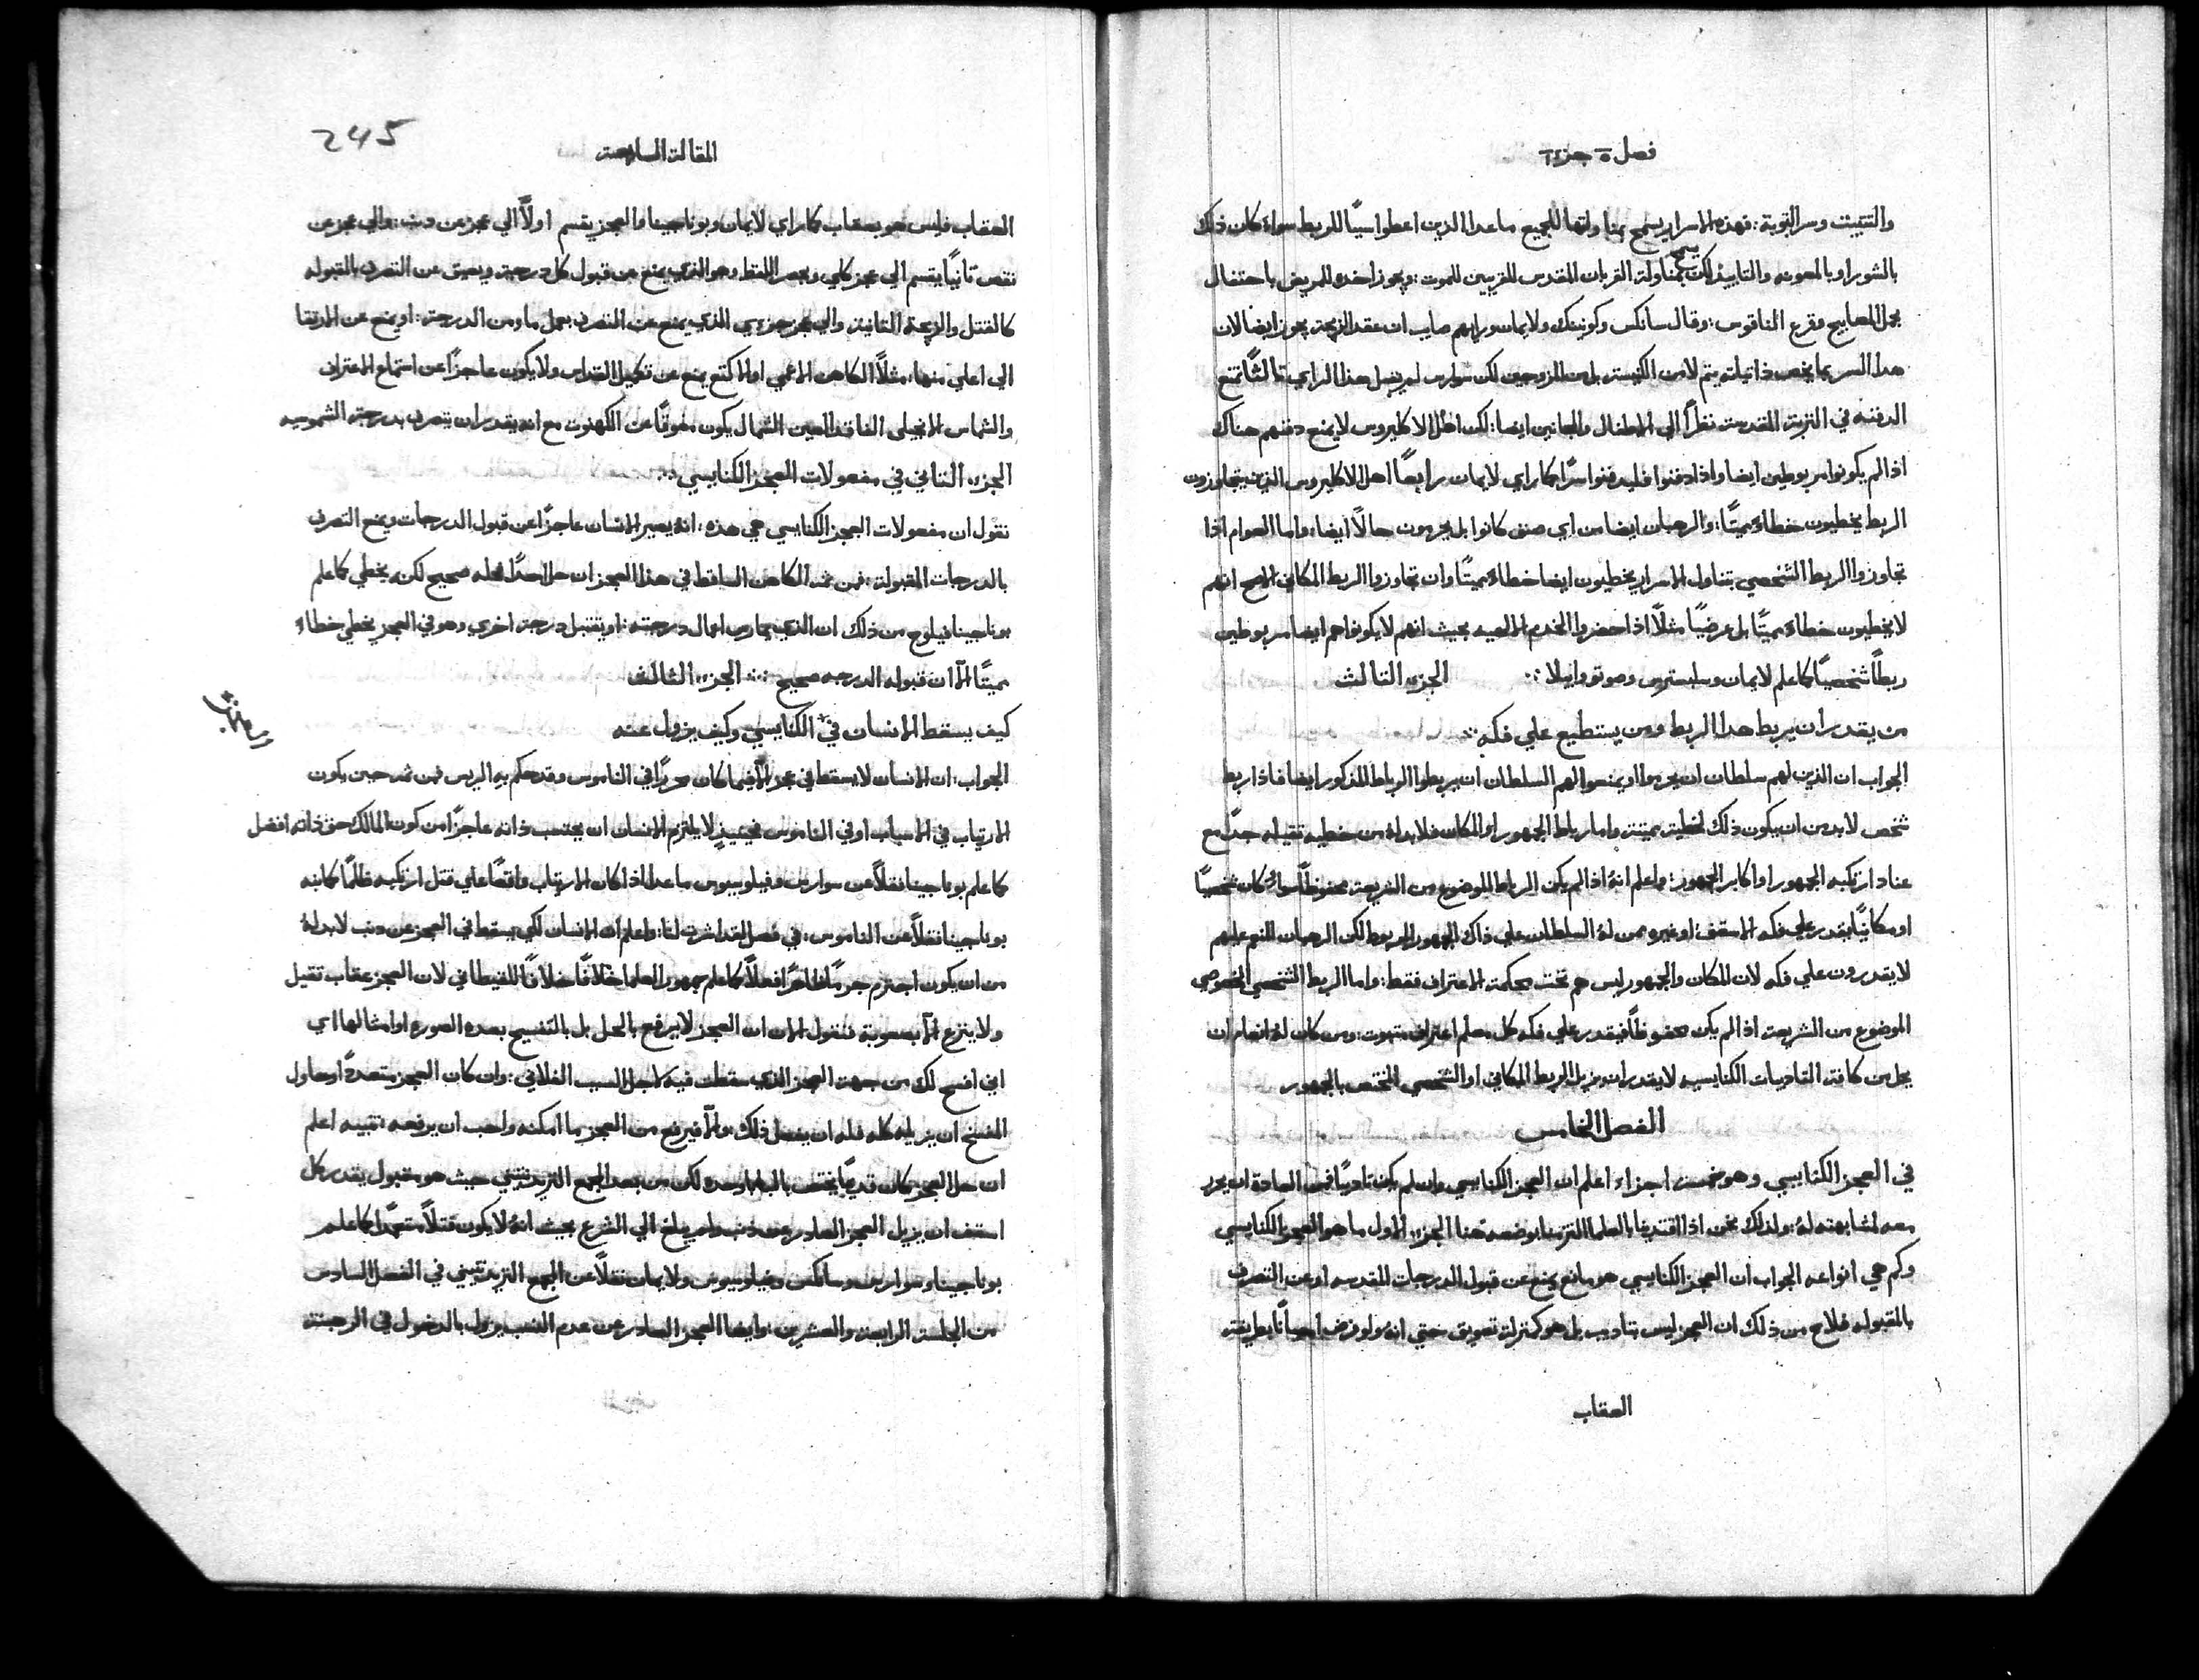 فصل ٥ جزء ٢
والتثبيت وسر التوبة : فهذه الاسرار يسمح بمناولتها للجميع ماعدا الدين اعطوا سببًا للربط سواءً كان ذلك
بالشور او بالمعونه والتاييد لكن يسمح بمناولة القربان المقدس للقريبين للموت : ويجوز اخده للمريض باحتفال
بحمل المصابيح وقرع الناقوس : وقال سانكس وكونينك ولايمان ورايهم صايب ان عقد الزيجة يجوز ايضا لان
هدا السر بما يخص ذاتيلته يتم لا من الكنيسة بل من المزوجين لكن سوارس لم يقبل هذا الراي تالثًا تمنع
الدفنه في التربة المقدسة نظرًا الي الاطفال والمجانين ايضا : لكن اهل الاكليروس لا يمنع دفنهم هناك
اذا لم يكونوا مربوطين ايضا واذا دفنوا فليدفنوا سرًا كما راي لايمان رابعًا اهل الاكليروس الذين يتجاوزون
الربط يخطيون خطاءً مميتًا : والرهبان ايضا من اي صنف كانوا بل يحرمون حالًا ايضا : واما العوام اذا
تجاوزوا الربط الشخصي بتناول الاسرار يخطيون ايضا خطاءً مميتًا وان تجاوزوا الربط المكاني الاصح انهم
لا يخطيون خطاءً مميتًا بل عرضيًا مثلًا اذا حضروا الخدم الالهيه بحيث انهم لا يكونوا هم ايضا مربوطين
ربطًا شخصيًا كما علم لايمان وسلبسترس وصوتو وابيلا :· الجزء التالث
من يقدر ان يربط هدا الربط ومن يستطيع علي فكه :·
الجواب ان الذين لهم سلطان ان يحرموا او يمنعوا لهم السلطان ان يربطوا الرباط المذكور ايضا فاذا ربط
شخص لا بد من ان يكون ذلك لخطية مميتة واما رباط الجمهور او المكان فلا بد له من خطيه تقيله جدًا مع
عناد ارتكبه الجمهور او اكابر الجمهور : واعلم انه اذ الم يكن الرباط الموضوع من الشريعة محفوظًا سواءً كان شخصيًا
او مكانيًا يقدر علي فكه الاسقف او غيره ممن لهُ السلطان علي ذاك الجمهور المربوط لكن الرهبان المنعم عليهم
لا يقدرون علي فكه لان المكان والجمهور ليس هم تحت محكمة الاعتراف فقط : واما الربط الشخصي الخصوصي
الموضوع من الشريعة اذ الم يكن محفوظًا فيقدر علي فكه كل معلم اعتراف متبوت : ومن كان لهُ انعام ان
يحل من كافة التاديبات الكنايسيه لا يقدر ان يزيل الربط المكاني او الشخصي المختص بالجمهور
الفصل الخامس
في العجز الكنايسي وهو خمسة اجزاء اعلم ان العجز الكنايسي وان لم يكن تاديبًا فمن العادة ان يحرر
معه لمشابهته لهُ : ولذلك نحن اذ اقتدينا بالعلما التزمنا بوضعه هنا الجزء الاول ما هو العجز الكنايسي
وكم هي انواعه الجواب ان العجز الكنايسي هو مانع يمنع عن قبول الدرجات المقدسه او عن التصرف
بالمقبوله فلاح من ذلك ان العجز ليس بتاديب بل هو كمنزلة تعويق حتي انه ولو فرض احيانًا بطريقة
العقاب
245
المقالة السابعة
العقاب فليس هو بعقاب كما راي لايمان وبوناجينا والعجز يقسم اولًا الي عجز عن دنب : والي عجز عن
نقص تانيًا يقسم الي عجز كلي وبحصر اللفظ وهو الذي يمنع عن قبول كل درجة ويعيق عن التصرف بالقبوله
كالقتل والزيجة التانية والي عجز جزءيي الذي يمنع عن التصرف بعمل ما ومن الدرجة : او يمنع عن الارتقا
الي اعلي منها : مثلًا الكاهن الاعمي او الاكتع يمنع عن تكميل القداس ولا يكون عاجزًا عن استماع الاعتراف
والشماس الانجيلي الفاقد العين الشمال يكون معوقًا عن الكهنوت مع انه يقدر ان يتصرف بدرجة الشموسيه
الجزء التاني في مفعولات العجز الكنايسي :·
نقول ان مفعولات العجز الكنايسي هي هذه : انهُ يصير الانسان عاجزًا عن قبول الدرجات ويمنع التصرف
بالدرجات المقبولة : فمن تم الكاهن الساقط في هذا العجز ان حل احدًا فحله صحيح لكنه يخطي كما علم
بوناجينا فيلوح من ذلك ان الذي يمارس اعمال درجته : او يقتبل درجة اخري وهو في العجز يخطي خطاءً
مميتًا الا ان قبوله الدرجه صحيح :· الجزء الثالث
كيف يسقط الانسان في الكنايسي وكيف يزول عنه
الجواب : ان الانسان لا يسقط في عجز الا فيما كان محررًا في الناموس وقد حكم به الريس فمن تم حين يكون
الارتياب في الاسباب او في الناموس فحينيذٍ لا يلتزم الانسان ان يحتسب ذاته عاجزًا من كون المالك حق ذاته افضل
كما علم بوناجينا نقلًا عن سوارس وفيلوسيوس ماعدا اذا كان الارتياب واقعًا علي قتل ارتكبه ظلمًا كما نبه
بوناجينا نقلًا عن الناموس : في فصل قد اشرت لنا : واعلم ان الانسان لكي يسقط في العجز عن دنب لا بد لهُ
من ان يكون اجترم جرمًا ظاهرًا فعلًا كما علم جمهور العلما خلافًا خلافًا للغيطاني لان العجز عقاب تقيل
ولا ينزع الا بصعوبة فنقول الان ان العجز لا يرفع بالحل بل بالتفسيح بهده الصوره او امثالها اي
اني افسح لك من جهة العجز الذي سقطت فيه لاجل السبب الفلاني : وان كان العجز متعددًا وحاول
المفسح ان يزيله كله فله ان يفعل ذلك والا فيرفع من العجز ما امكنه واحب ان يرفعه : تنبيه اعلم
ان حل العجز كان قديمًا يختص بالبابا وحده لكن من بعد الجمع التريدنتيني حيث هو مقبول يقدر كل
اسقف ان يزيل العجز الصادر عن ذنب وامر يبلغ الي الشرع بحيث انهُ لا يكون قتلًا متعمدًا كما علم
بوناجينا وسوارس وسانكس وفيلوسيوس ولايمان نقلًا عن المجمع التريدنتيني في الفصل السادس
من الجلسة الرابعة والعشرين : وايضا العجز الصادر عن عدم النسب يزول بالدخول في الرهبنة